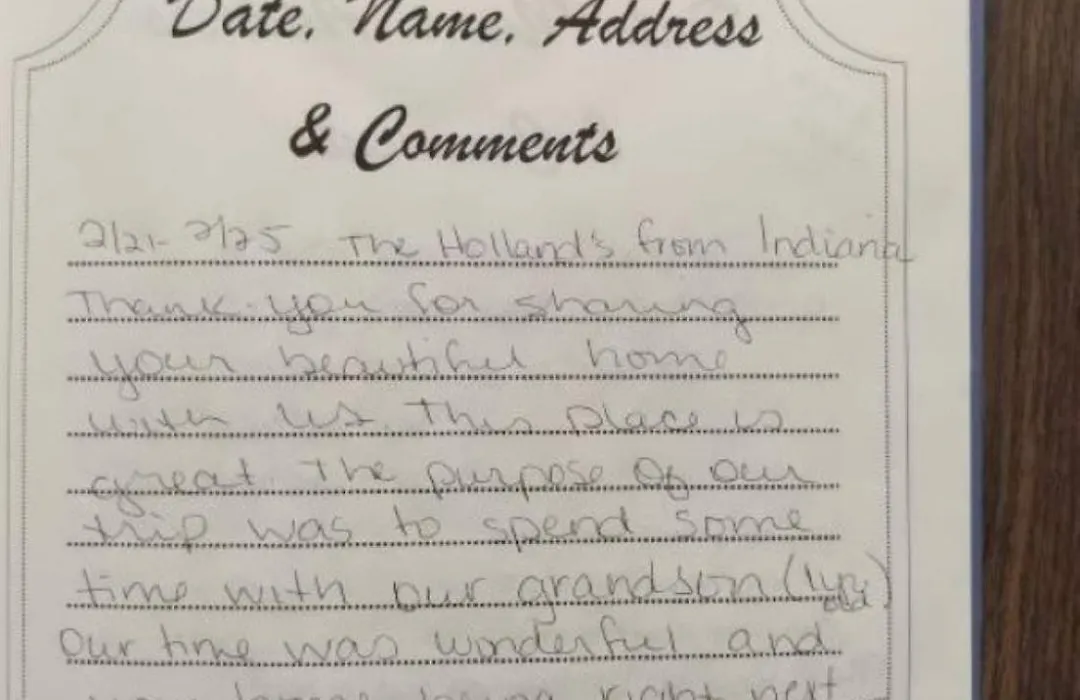 Date, Name, Address
& Comments
2/21- 2/25 The Holland's from Indiana
Thank you for sharing
your beautiful home
with us. This place is
great. The purpose of our
trip was to spend some
time with our grandson (1yr old)
Our time was wonderful and
being right next